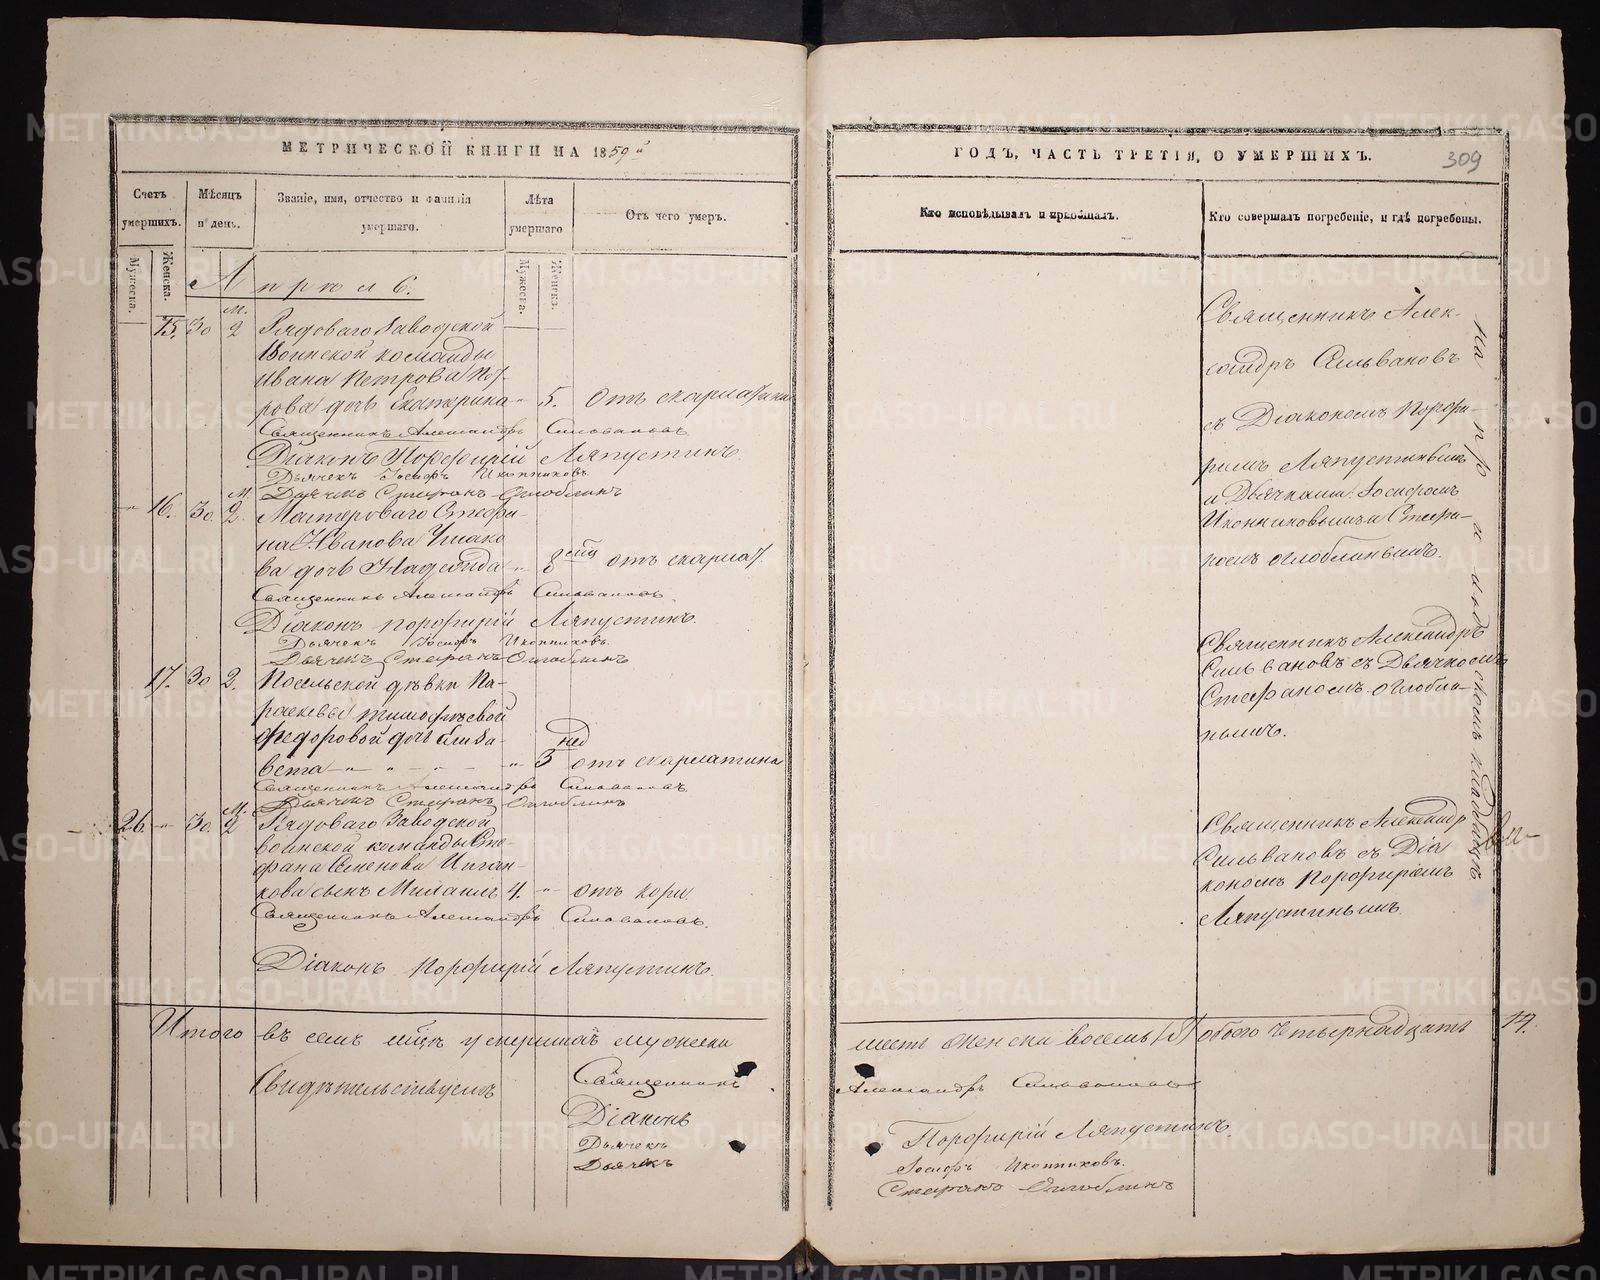 МЕТРИЧЕСКОЙ КНИГИ НА 1859й
Счетъ умершихъ.
Мужеска.
Женска.
Мѣсяцъ и день.
Званіе, имя, отчество и фамилія умершаго.
Лѣта умершаго
Мужеска.
Женска.
Отъ чего умеръ.
Апрѣль.
15. 30 М. 2 Рядоваго Заводской
Воинской команды
Ивана Петрова
рова дочь Екатерина - 5. Отъ скарлатины
Священникъ Александръ Сильвановъ
Діаконъ Порфирій Ляпустинъ
Дьячекъ Іосифъ Иконниковъ
Дьячекъ Стефанъ Оглоблинъ
- 16. 30 М. 2. Мастероваго Стефа-
на Иванова Ушако
ва дочь Надежда " 8 отъ скарлат.
Священникъ Александръ Сильвановъ
Діаконъ Порфирій Ляпустинъ.
Дьячекъ Іосифъ Иконниковъ.
Дьячекъ Стефанъ Оглоблинъ
17. 30 2. Посельской дѣвки Па-
расковьи Тимофѣевой
Федоровой дочь Елиза-
вета - " - " - " 3 нед отъ скарлатина
Священникъ Александръ Сильвановъ
Дьячекъ Стефанъ Оглоблинъ
26. " 30. М. 2 Рядоваго Заводской
воинской команды Сте-
фана Семенова Цыган-
кова сынъ Михаилъ 4. " отъ кори.
Священникъ Александръ Сильвановъ.
Діаконъ Порфирій Ляпустинъ.
Итого въ семъ мцѣ умершихъ мужеска
Свидѣтельствуемъ
Священникъ
Діаконъ
Дьячекъ
Дьячекъ
ГОДЪ, ЧАСТЬ ТРЕТІЯ, О УМЕРШИХЪ.
309
Кто исповѣдывалъ и пріобщалъ.
Кто совершалъ погребеніе, и гдѣ погребены.
Священникъ Алек-
сандръ Сильвановъ
съ Діакономъ Порфи-
ріемъ Ляпустинымъ
и Дьячками: Іосифомъ
Иконниковымъ и Стефа-
номъ Оглоблинымъ.
Священникъ Александръ
Сильвановъ съ Дьячкомъ
Стефаномъ Оглобли-
нымъ.
Священникъ Александръ
Сильвановъ съ Діа
кономъ Порфиріемъ
Ляпустинымъ.
На приходскомъ кладбищѣ
шесть женска восемь обоего четырнадцать 14.
Александръ Сильвановъ
Порфирій Ляпустинъ.
Іосифъ Иконниковъ.
Стефанъ Оглоблинъ
METRIKI.GASO-URAL.RU